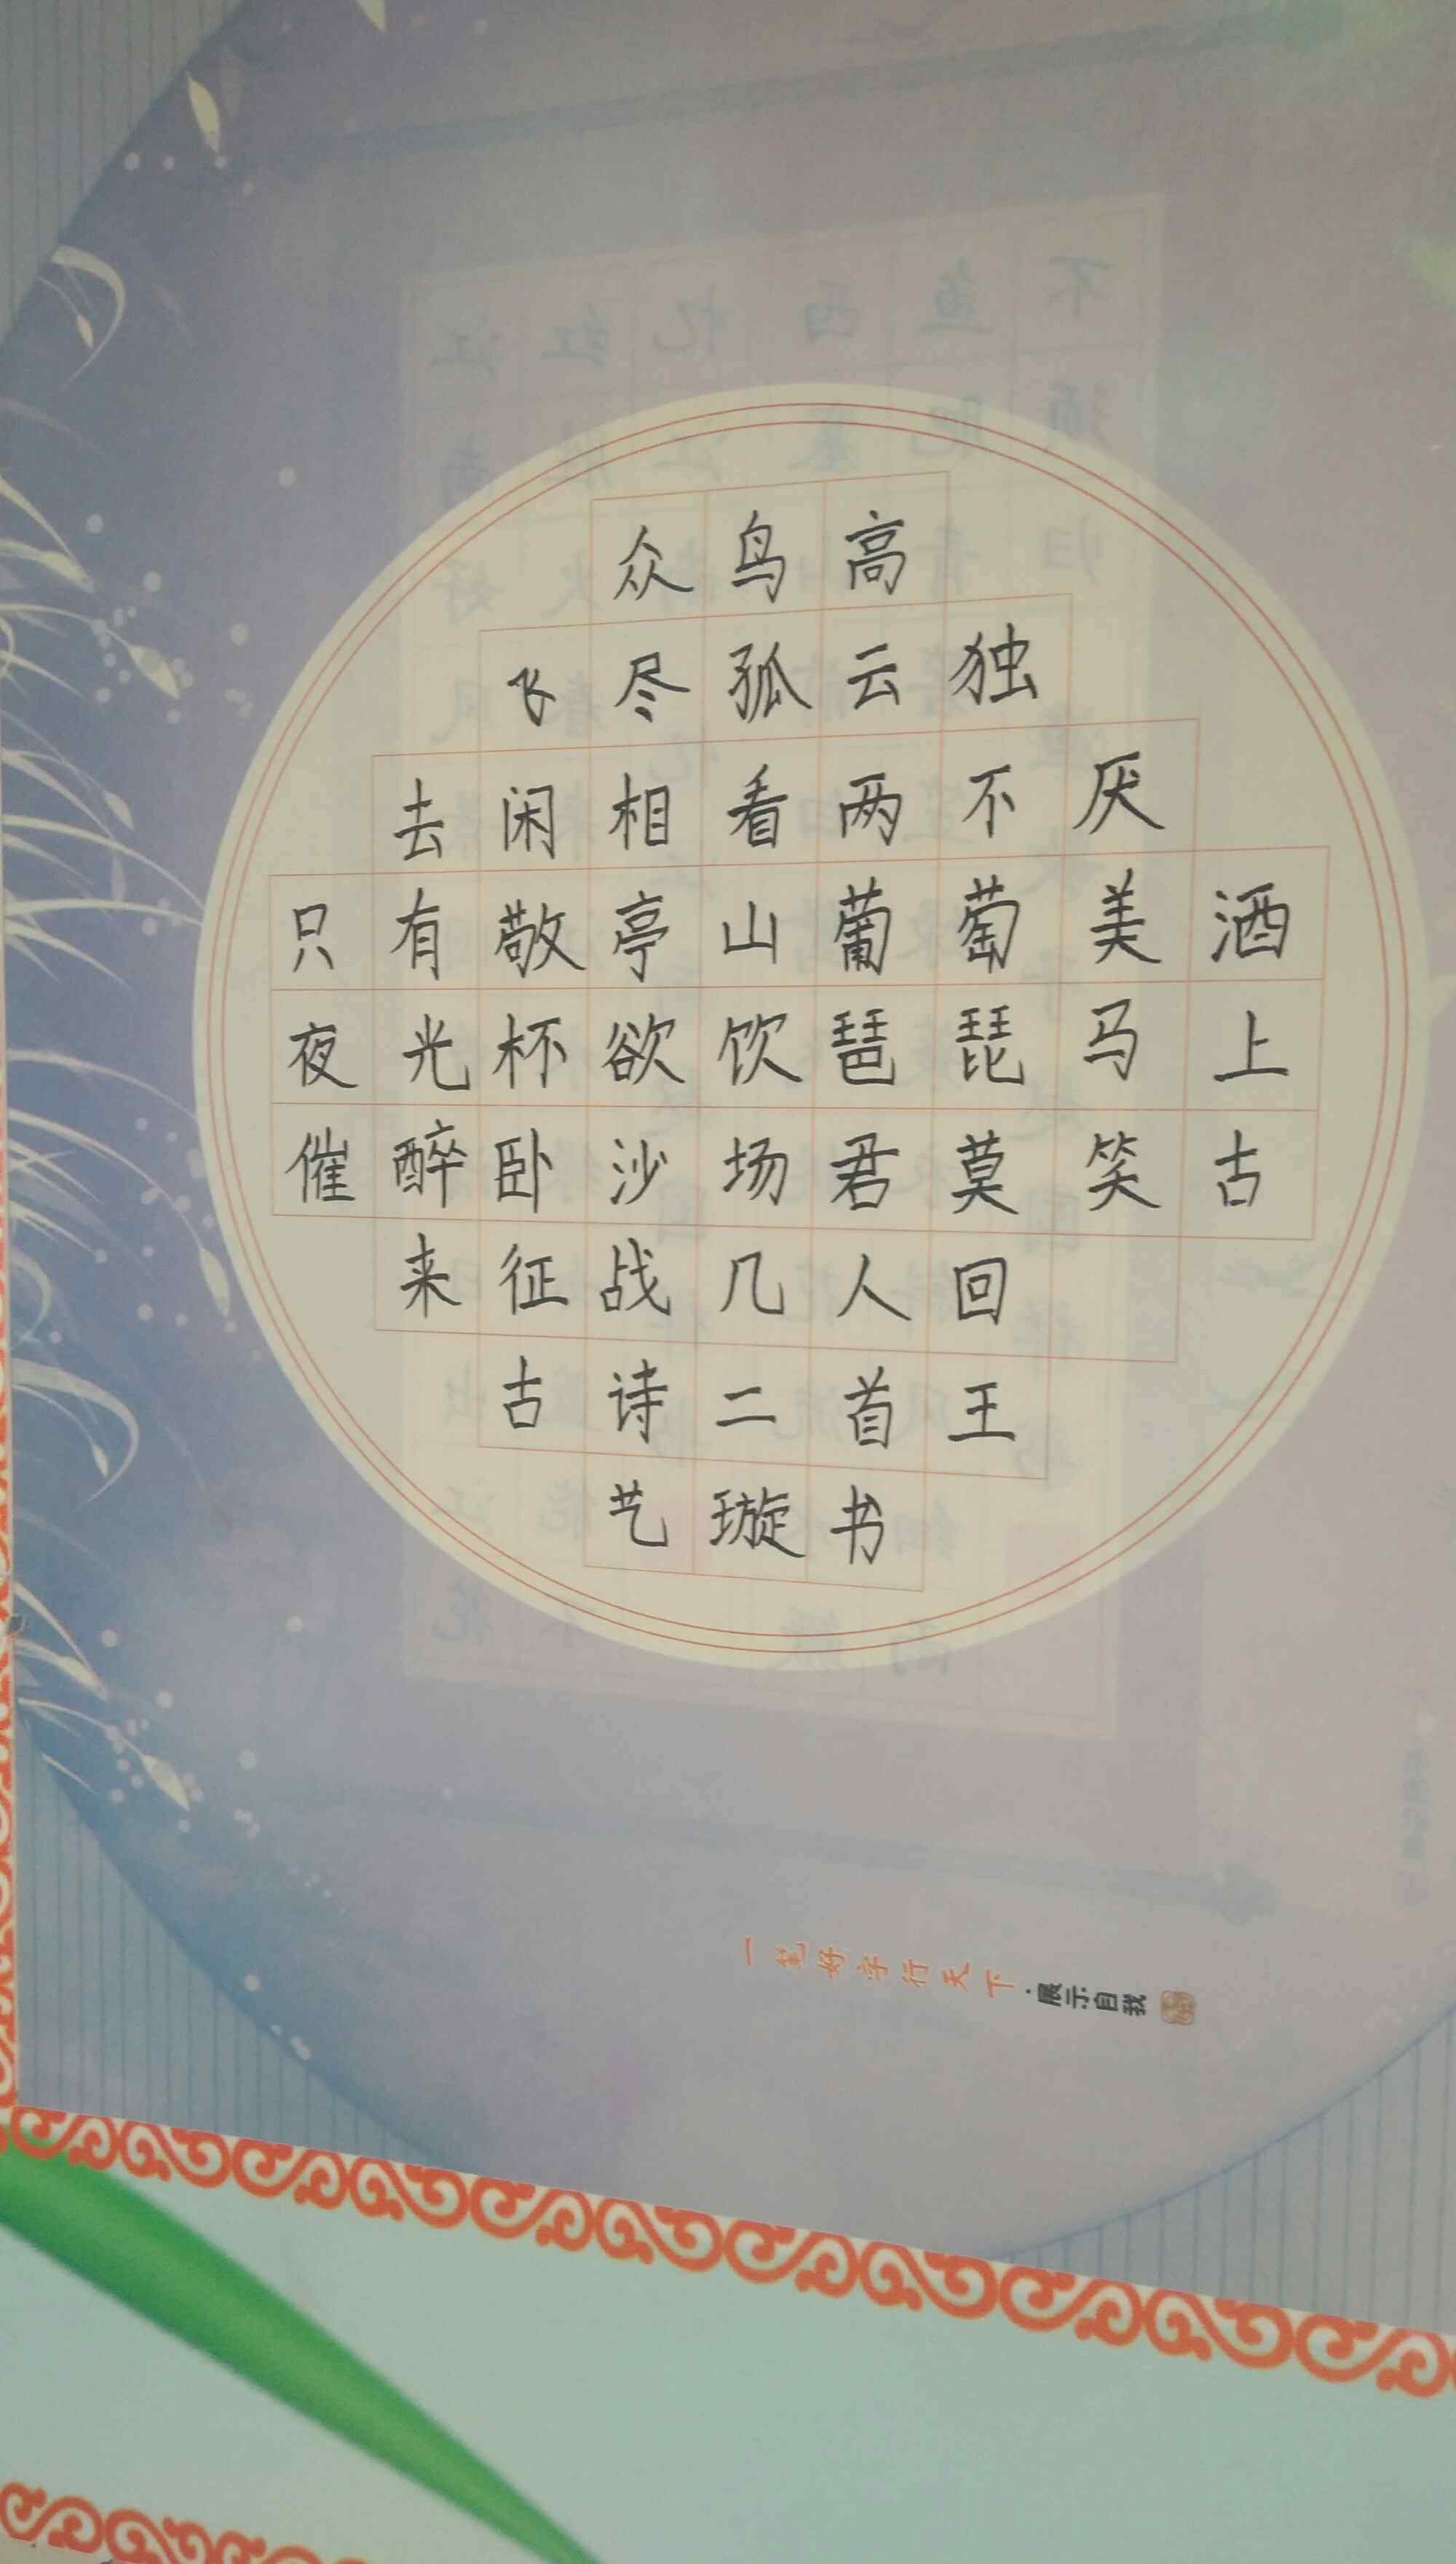 众鸟高
飞尽孤云独
去闲相看两不厌
只有敬亭山葡萄美酒
夜光杯欲饮琶琵马上
催醉卧沙场君莫笑古
来征战几人回
古诗二首王
艺璇书
一笔好字行天下·展示自我